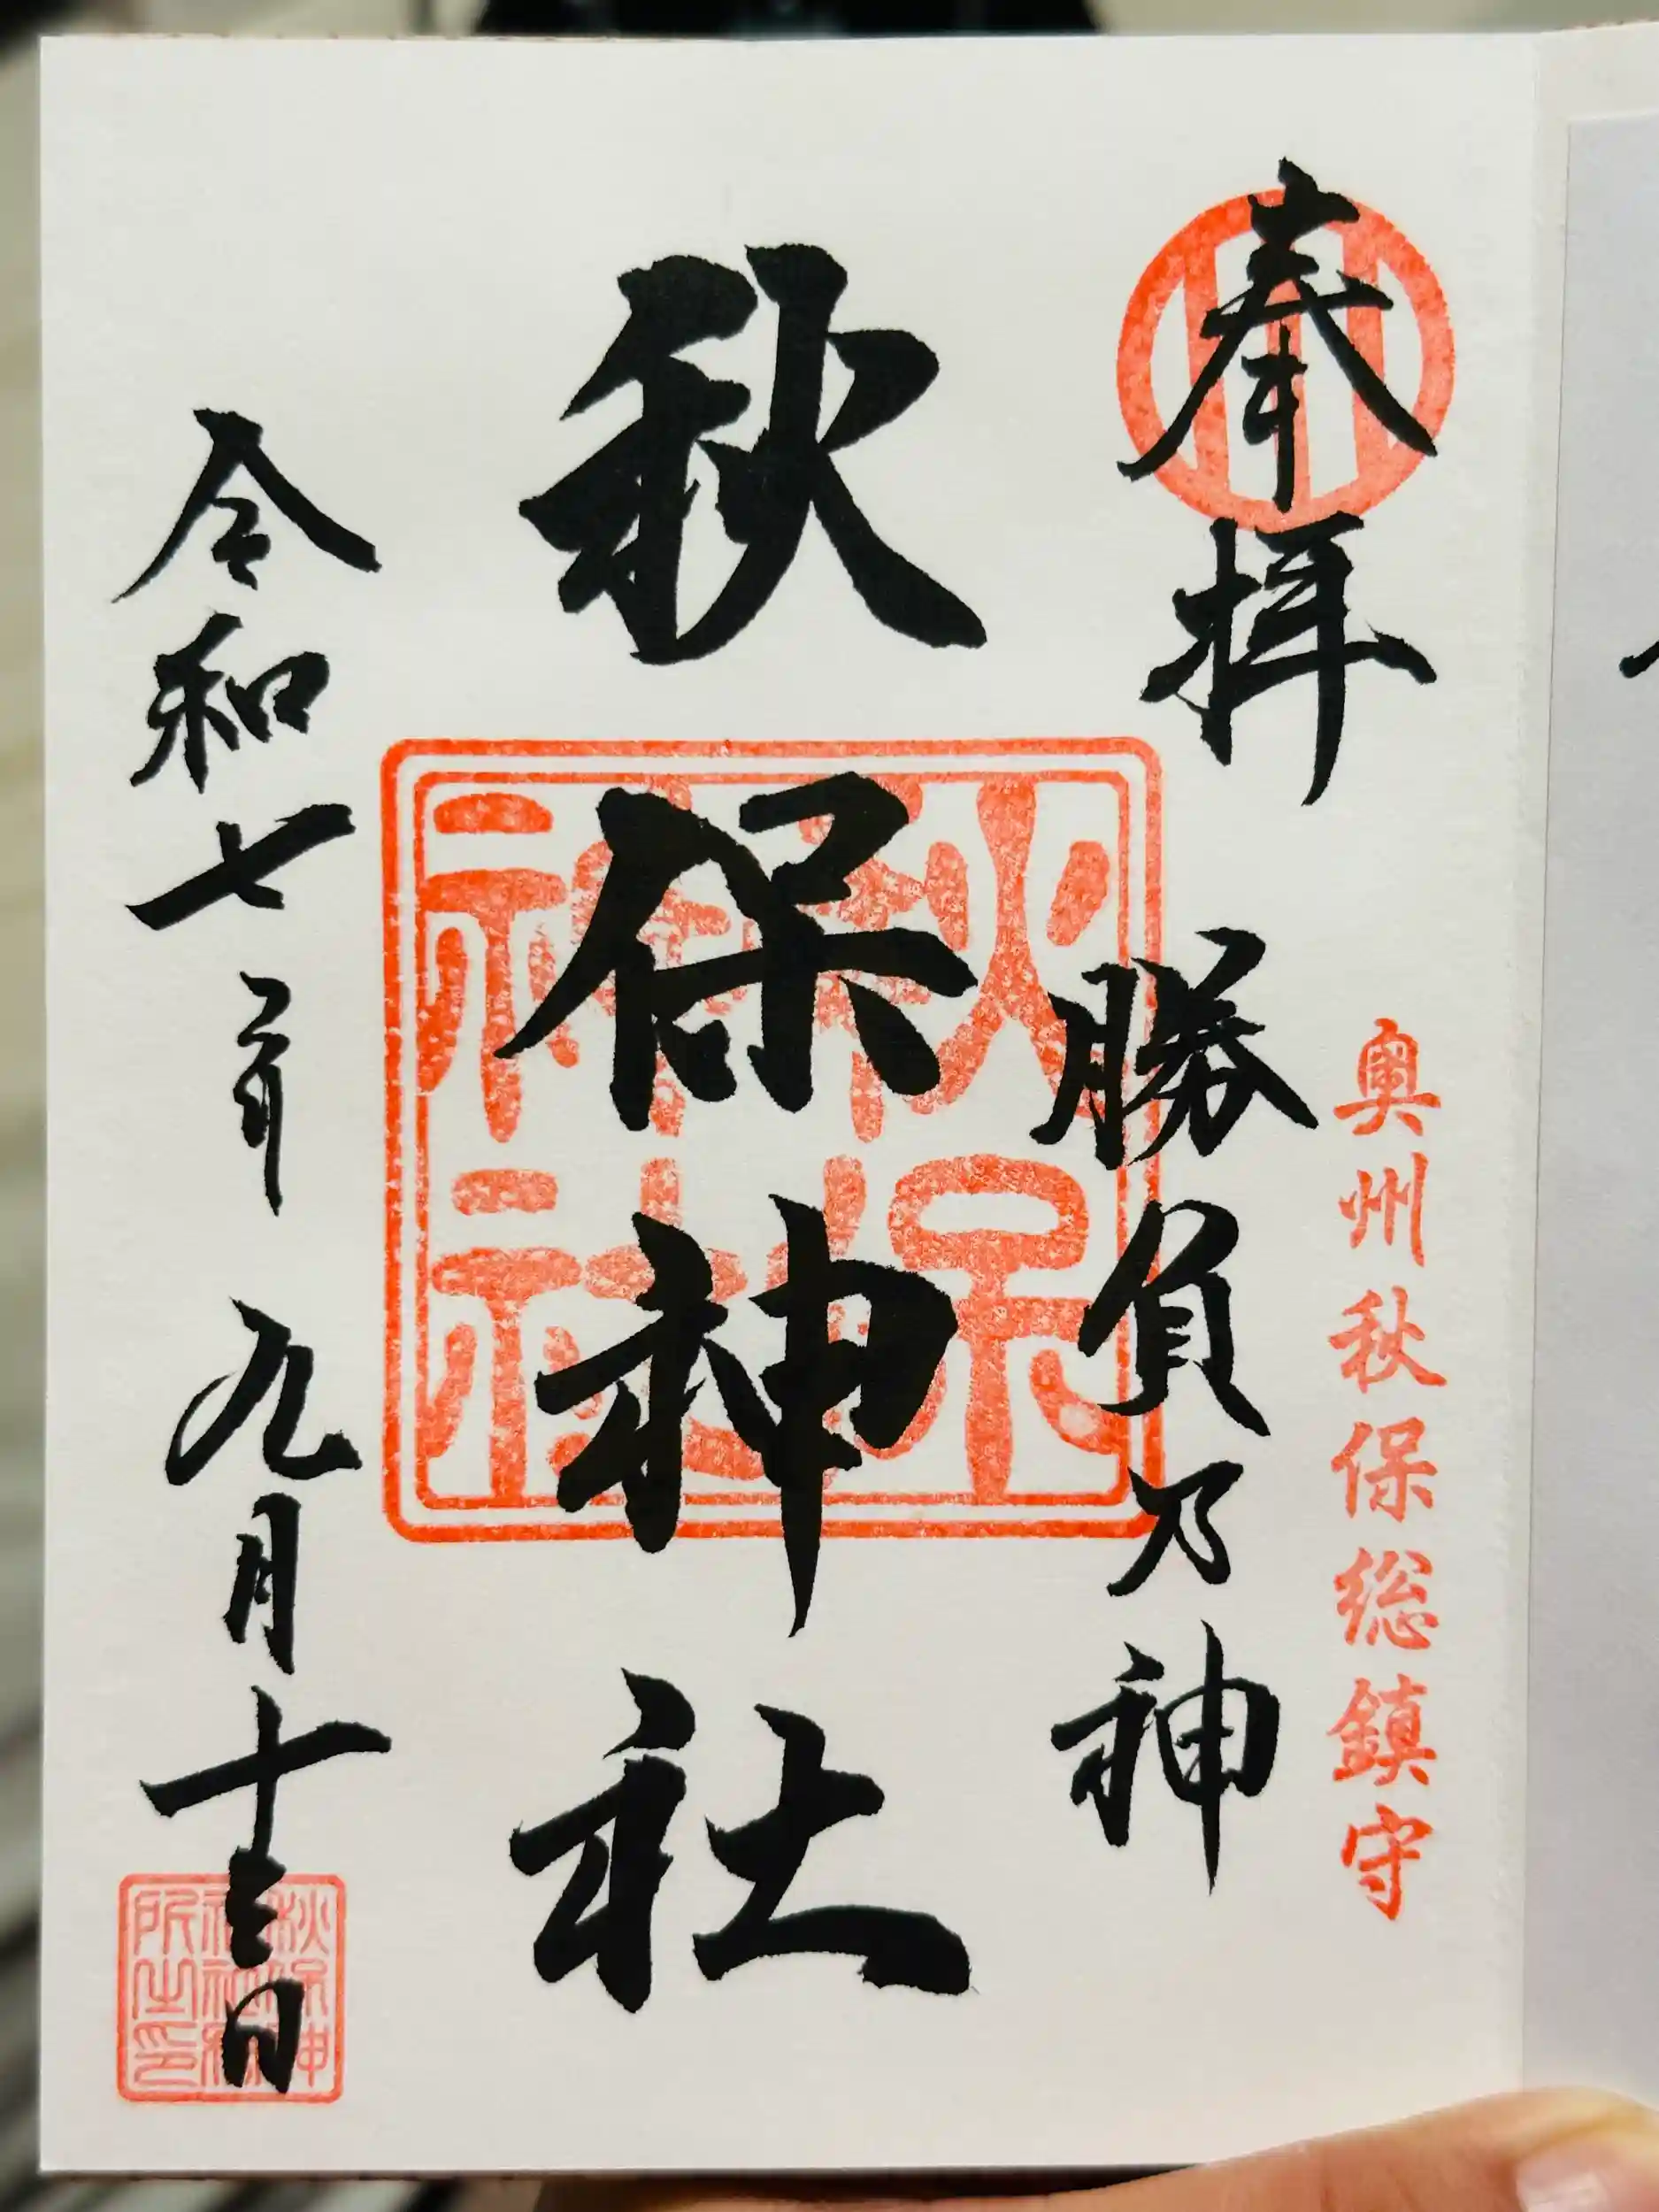 奉拝
奥州秋保総鎮守
勝負乃神
秋保神社
秋保神社
令和七年九月十三日
秋保神社社務所之印